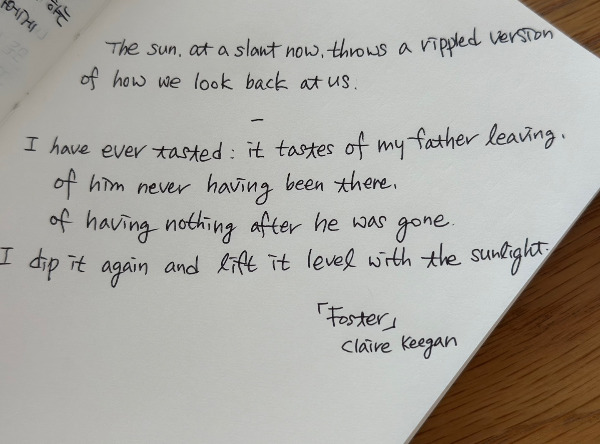 The sun, at a slant now, throws a rippled version
of how we look back at us.
–
I have ever tasted : it tastes of my father leaving,
of him never having been there,
of having nothing after he was gone.
I dip it again and lift it level with the sunlight.
「Foster」
Claire Keegan